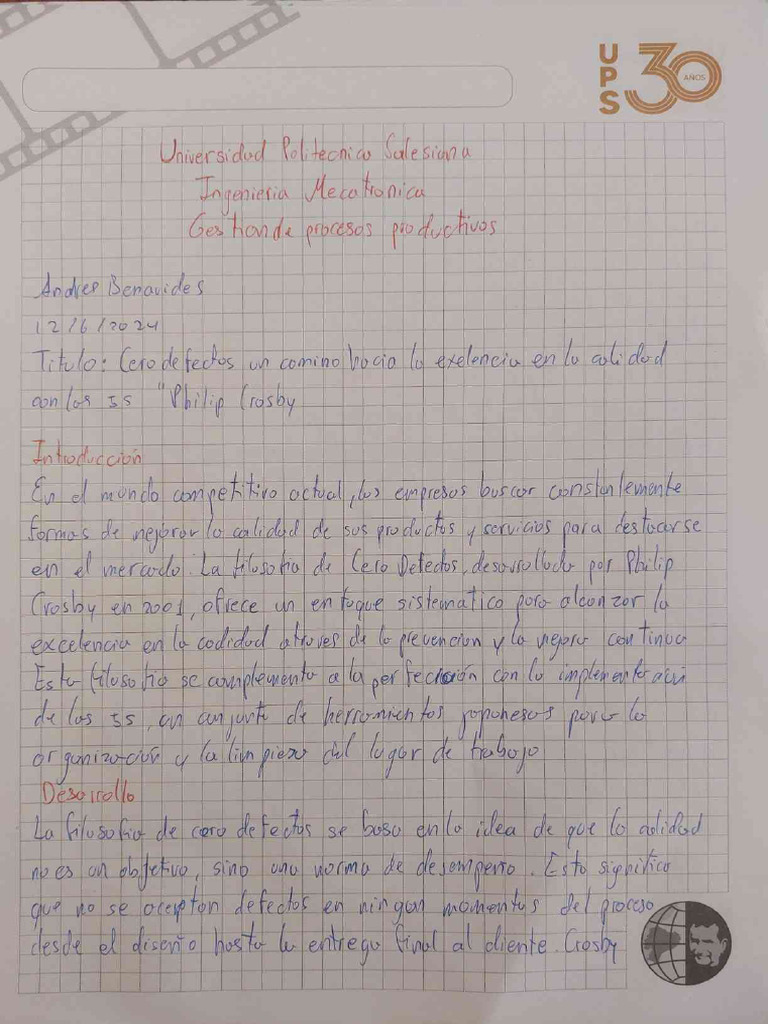 UPS 30 AÑOS
Universidad Politecnica Salesiana
Ingenieria Mecatronica
Gestion de procesos productivos
Andres Benavides
12/6/2024
Titulo: Cero defectos un camino hacia la exelencia en la calidad
con las 5s "Philip Crosby
Introducción
En el mundo competitivo actual, las empresas buscar constantemente
formas de mejorar la calidad de sus productos y servicios para destacarse
en el mercado. La filosofia de Cero Defectos, desarrollada por Philip
Crosby en 2001, ofrece un enfoque sistematico para alcanzar la
excelencia en la calidad atraves de la prevencion y la mejora continua
Esta filosofia se complementa a la perfección con la implementación
de las 5s, un conjunto de herramientas japonesas para la
organización y la limpieza del lugar de trabajo
Desarrollo
La filosofia de cero defectos se basa en la idea de que la calidad
no es un objetivo, sino una norma de desempeño. Esto significa
que no se aceptan defectos en ningun momentos del proceso
desde el diseño hasta la entrega final al cliente. Crosby